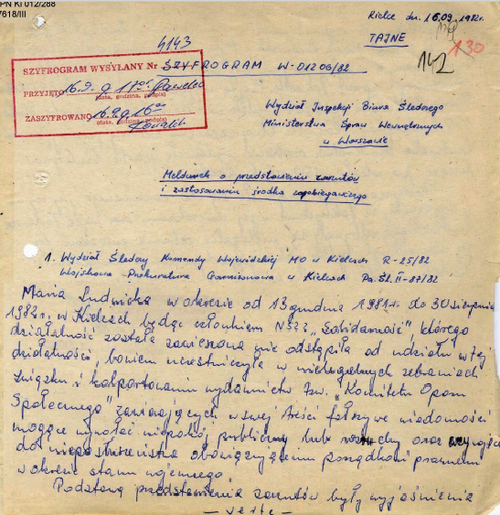 PN Ki 012/288
7618/III
Kielce dn. 16.09.1982r.
TAJNE
4143
130
142
SZYFROGRAM WYSYŁANY Nr
SZYFROGRAM W-01206/82
PRZYJĘTO 16.9. g 11
(data, godzina, podpis)
ZASZYFROWANO 16.9. g 16
(data, godzina, podpis)
Wydział Inspekcji Biura Śledczego
Ministerstwa Spraw Wewnętrznych
w Warszawie
Meldunek o przedstawieniu zarzutów
i zastosowaniu środka zapobiegawczego
1. Wydział Śledczy Komendy Wojewódzkiej MO w Kielcach R-25/82
Wojskowa Prokuratura Garnizonowa w Kielcach Pg. Śl. II-87/82
Maria Ludwicka w okresie od 13 grudnia 1981r. do 30 sierpnia
1982r. w Kielcach będąc członkiem NSZZ „Solidarność", którego
działalność została zawieszona nie odstąpiła od udziału w tej
działalności, bowiem uczestniczyła w nielegalnych zebraniach
Związku i kolportowaniu wydawnictw tzw. „Komitetu Oporu
Społecznego" zawierających w swej treści fałszywe wiadomości
mogące wywołać niepokój publiczny lub rozruchy oraz
do nieposłuszeństwa obowiązującemu porządkowi prawnemu
w okresie stanu wojennego.
Podstawą przedstawienia zarzutów były wyjaśnienia
- verte -